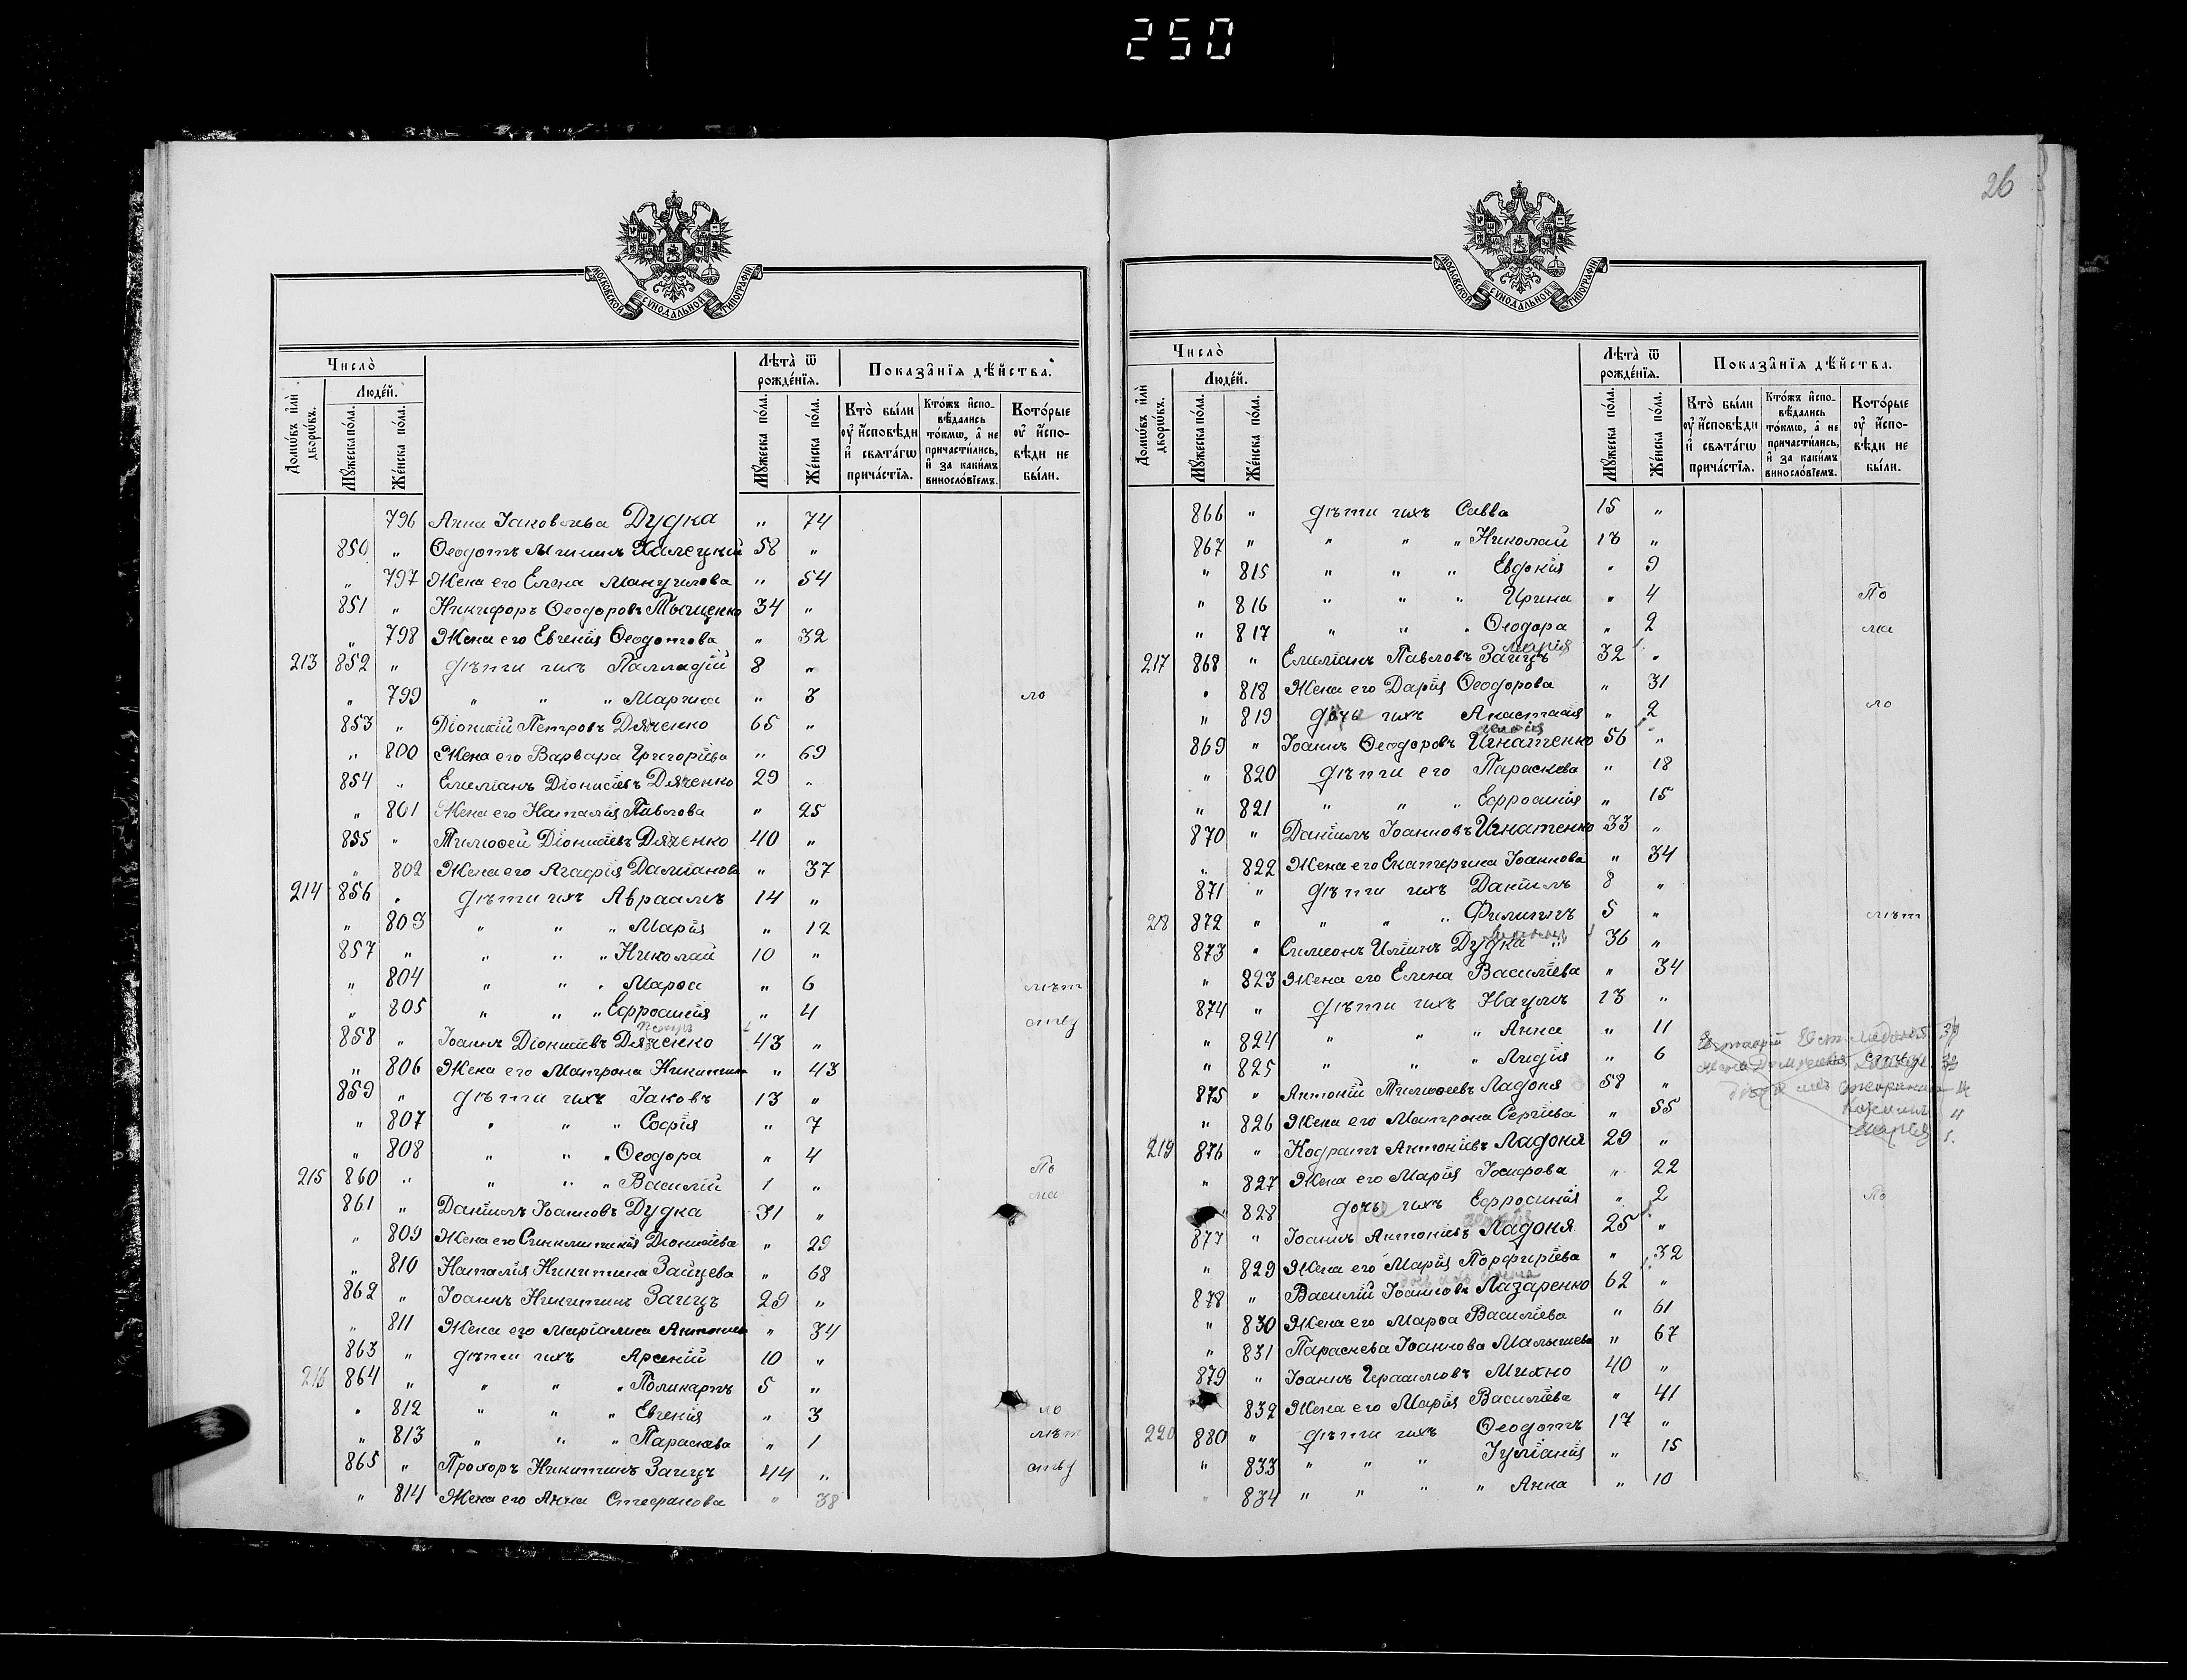 250
26
МОСКОВСКОЙ СѴНОДАЛЬНОЙ ТИПОГРАФІИ
Число̀
Людéй.
Домѡ́въ и҆лѝ дворѡ́въ.
Мꙋ́жеска по́ла.
Же́нска по́ла.
Лѣ́та ѿ рожде́нїѧ.
Мꙋ́жеска по́ла.
Же́нска по́ла.
Показа̑нїѧ дѣ́йства.
Кто̀ бы́ли ᲂу҆ и҆́сповѣди и҆ свѧта́гѡ прича́стїѧ.
Кто́жъ и҆спо-вѣ́дались то́кмѡ, а҆ не причасти́лись, и҆ за каки́мъ винословїемъ.
Кото́рые ᲂу҆ и҆́спо-вѣди не бы́ли.
796 Анна Іаковлева Дудка " 74
850 " Ѳеодотъ Халецкій 58 "
" 797 Жена его Елена Мануилова " 54
851 " Никифоръ Ѳеодоровъ Тыщенко 34 "
" 798 Жена его Евгенія Ѳеодотова " 32
213 852 " дѣти ихъ Палладій 8 "
" 799 " " " Марина " 3 ло
853 " Діонисій Петровъ Дяченко 65 "
" 800 Жена его Варвара Григоріева " 69
854 " Емеліанъ Діонисіевъ Дяченко 29 "
" 801 Жена его Наталія Павлова " 25
855 " Тимоѳей Діонисіевъ Дяченко 40 "
" 802 Жена его Агафія Даміанова " 37
214 856 " дѣти ихъ Авраамъ 14 "
" 803 " " " Марія " 12
857 " " " " Николай 10 "
" 804 " " " Марѳа " 6 лѣт
" 805 " " " Ефросинія " 4 ству
Петръ
858 " Іоаннъ Діонисіевъ Дяченко 43 "
" 806 Жена его Матрона Никитина " 43
859 " дѣти ихъ Іаковъ 13 "
" 807 " " " Софія " 7
" 808 " " " Ѳеодора " 4 По
215 860 " " " " Василій 1 " ма
861 " Даніилъ Іоанновъ Дудка 31 "
" 809 Жена его Синклитикія Діонисіева " 29
" 810 Наталія Никитина Зайцева " 68
862 " Іоаннъ Никитинъ Заицъ 29 "
" 811 Жена его Маріамна Антоніева " 34
863 " дѣти ихъ Арсеній 10 "
216 864 " " " " Поликарпъ 5 "
" 812 " " " Евгенія " 3 ло
" 813 " " " Параскева " 1 лѣт
865 " Прохоръ Никитинъ Заицъ 44 " ству
" 814 Жена его Анна Стефанова " 38
МОСКОВСКОЙ СѴНОДАЛЬНОЙ ТИПОГРАФІИ
Число̀
Людéй.
Домѡ́въ и҆лѝ дворѡ́въ.
Мꙋ́жеска по́ла.
Же́нска по́ла.
Лѣ́та ѿ рожде́нїѧ.
Мꙋ́жеска по́ла.
Же́нска по́ла.
Показа̑нїѧ дѣ́йства.
Кто̀ бы́ли ᲂу҆ и҆́сповѣди и҆ свѧта́гѡ прича́стїѧ.
Кто́жъ и҆спо-вѣ́дались то́кмѡ, а҆ не причасти́лись, и҆ за каки́мъ винословїемъ.
Кото́рые ᲂу҆ и҆́спо-вѣди не бы́ли.
866 " дѣти ихъ Савва 15 "
867 " " " " Николай 13 "
" 815 " " " Евдокія " 9
" 816 " " " Ирина " 4 По
" 817 " " " Ѳеодора " 2 ма
Марія
217 868 " Емеліанъ Павловъ Заицъ 32 "
" 818 Жена его Дарія Ѳеодорова " 31
" 819 дочь ихъ Анастасія " 2 ло
869 " Іоаннъ Ѳеодоровъ Игнатенко 56 "
" 820 дѣти его Параскева " 18
" 821 " " " Ефросинія " 15
870 " Даніилъ Іоанновъ Игнатенко 33 "
" 822 Жена его Екатерина Іоаннова " 34
871 " дѣти ихъ Даніилъ 8 "
218 872 " " " " Филиппъ 5 " лѣт
873 " Симеонъ Иліинъ Дудка 36 "
" 823 Жена его Елена Василіева " 34
874 " дѣти ихъ Наумъ 13 "
" 824 " " " Анна " 11
" 825 " " Лидія " 6
875 " Антоній Тимоѳеевъ Ладоня 58 "
" 826 Жена его Матрона Сергіева " 55
219 876 " Кодратъ Антоніевъ Ладоня 29 "
" 827 Жена его Марія Іосифова " 22
828 дочь ихъ Ефросинія " 2 По
877 " Іоаннъ Антоніевъ Ладоня 25 "
" 829 Жена его Марія Порфиріева " 32
878 " Василій Іоанновъ Лазаренко 62 "
" 830 Жена его Марѳа Василіева " 61
" 831 Параскева Іоаннова Малышева " 67
879 " Іоаннъ Герасимовъ Михно 40 "
832 Жена его Марія Василіева " 41
220 880 " дѣти ихъ Ѳеодотъ 17 "
" 833 " " " Іуліанія " 15
" 834 " " " " Анна " 10